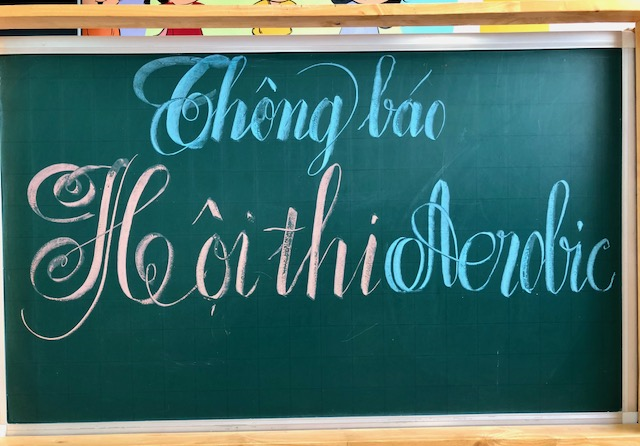 Thông báo
Hội thi Aerobic